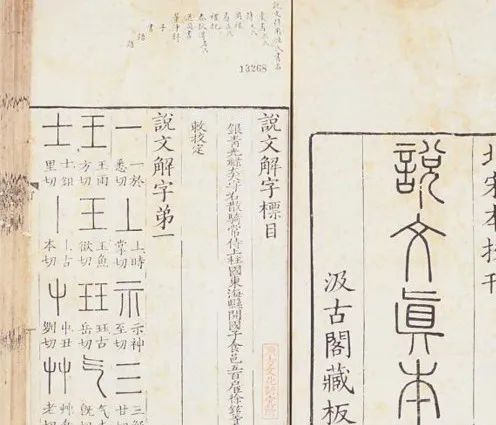 北宋本校刊
說文眞本
汲古閣藏板
13268
說文解字標目
銀青光祿大夫守右散騎常侍上柱國東海縣開國子食邑五百戶徐鉉等
敕校定
說文解字弟一
一 一於悉切
丄 丄時掌切
示 示神至切
三 三 甘切
王 王雨方切
王 王魚欲切
玨 玨古岳切
气 气 旣切
士 士鉏里切
丨 丨古本切
屮 屮丑劉切
艸 艸 老切